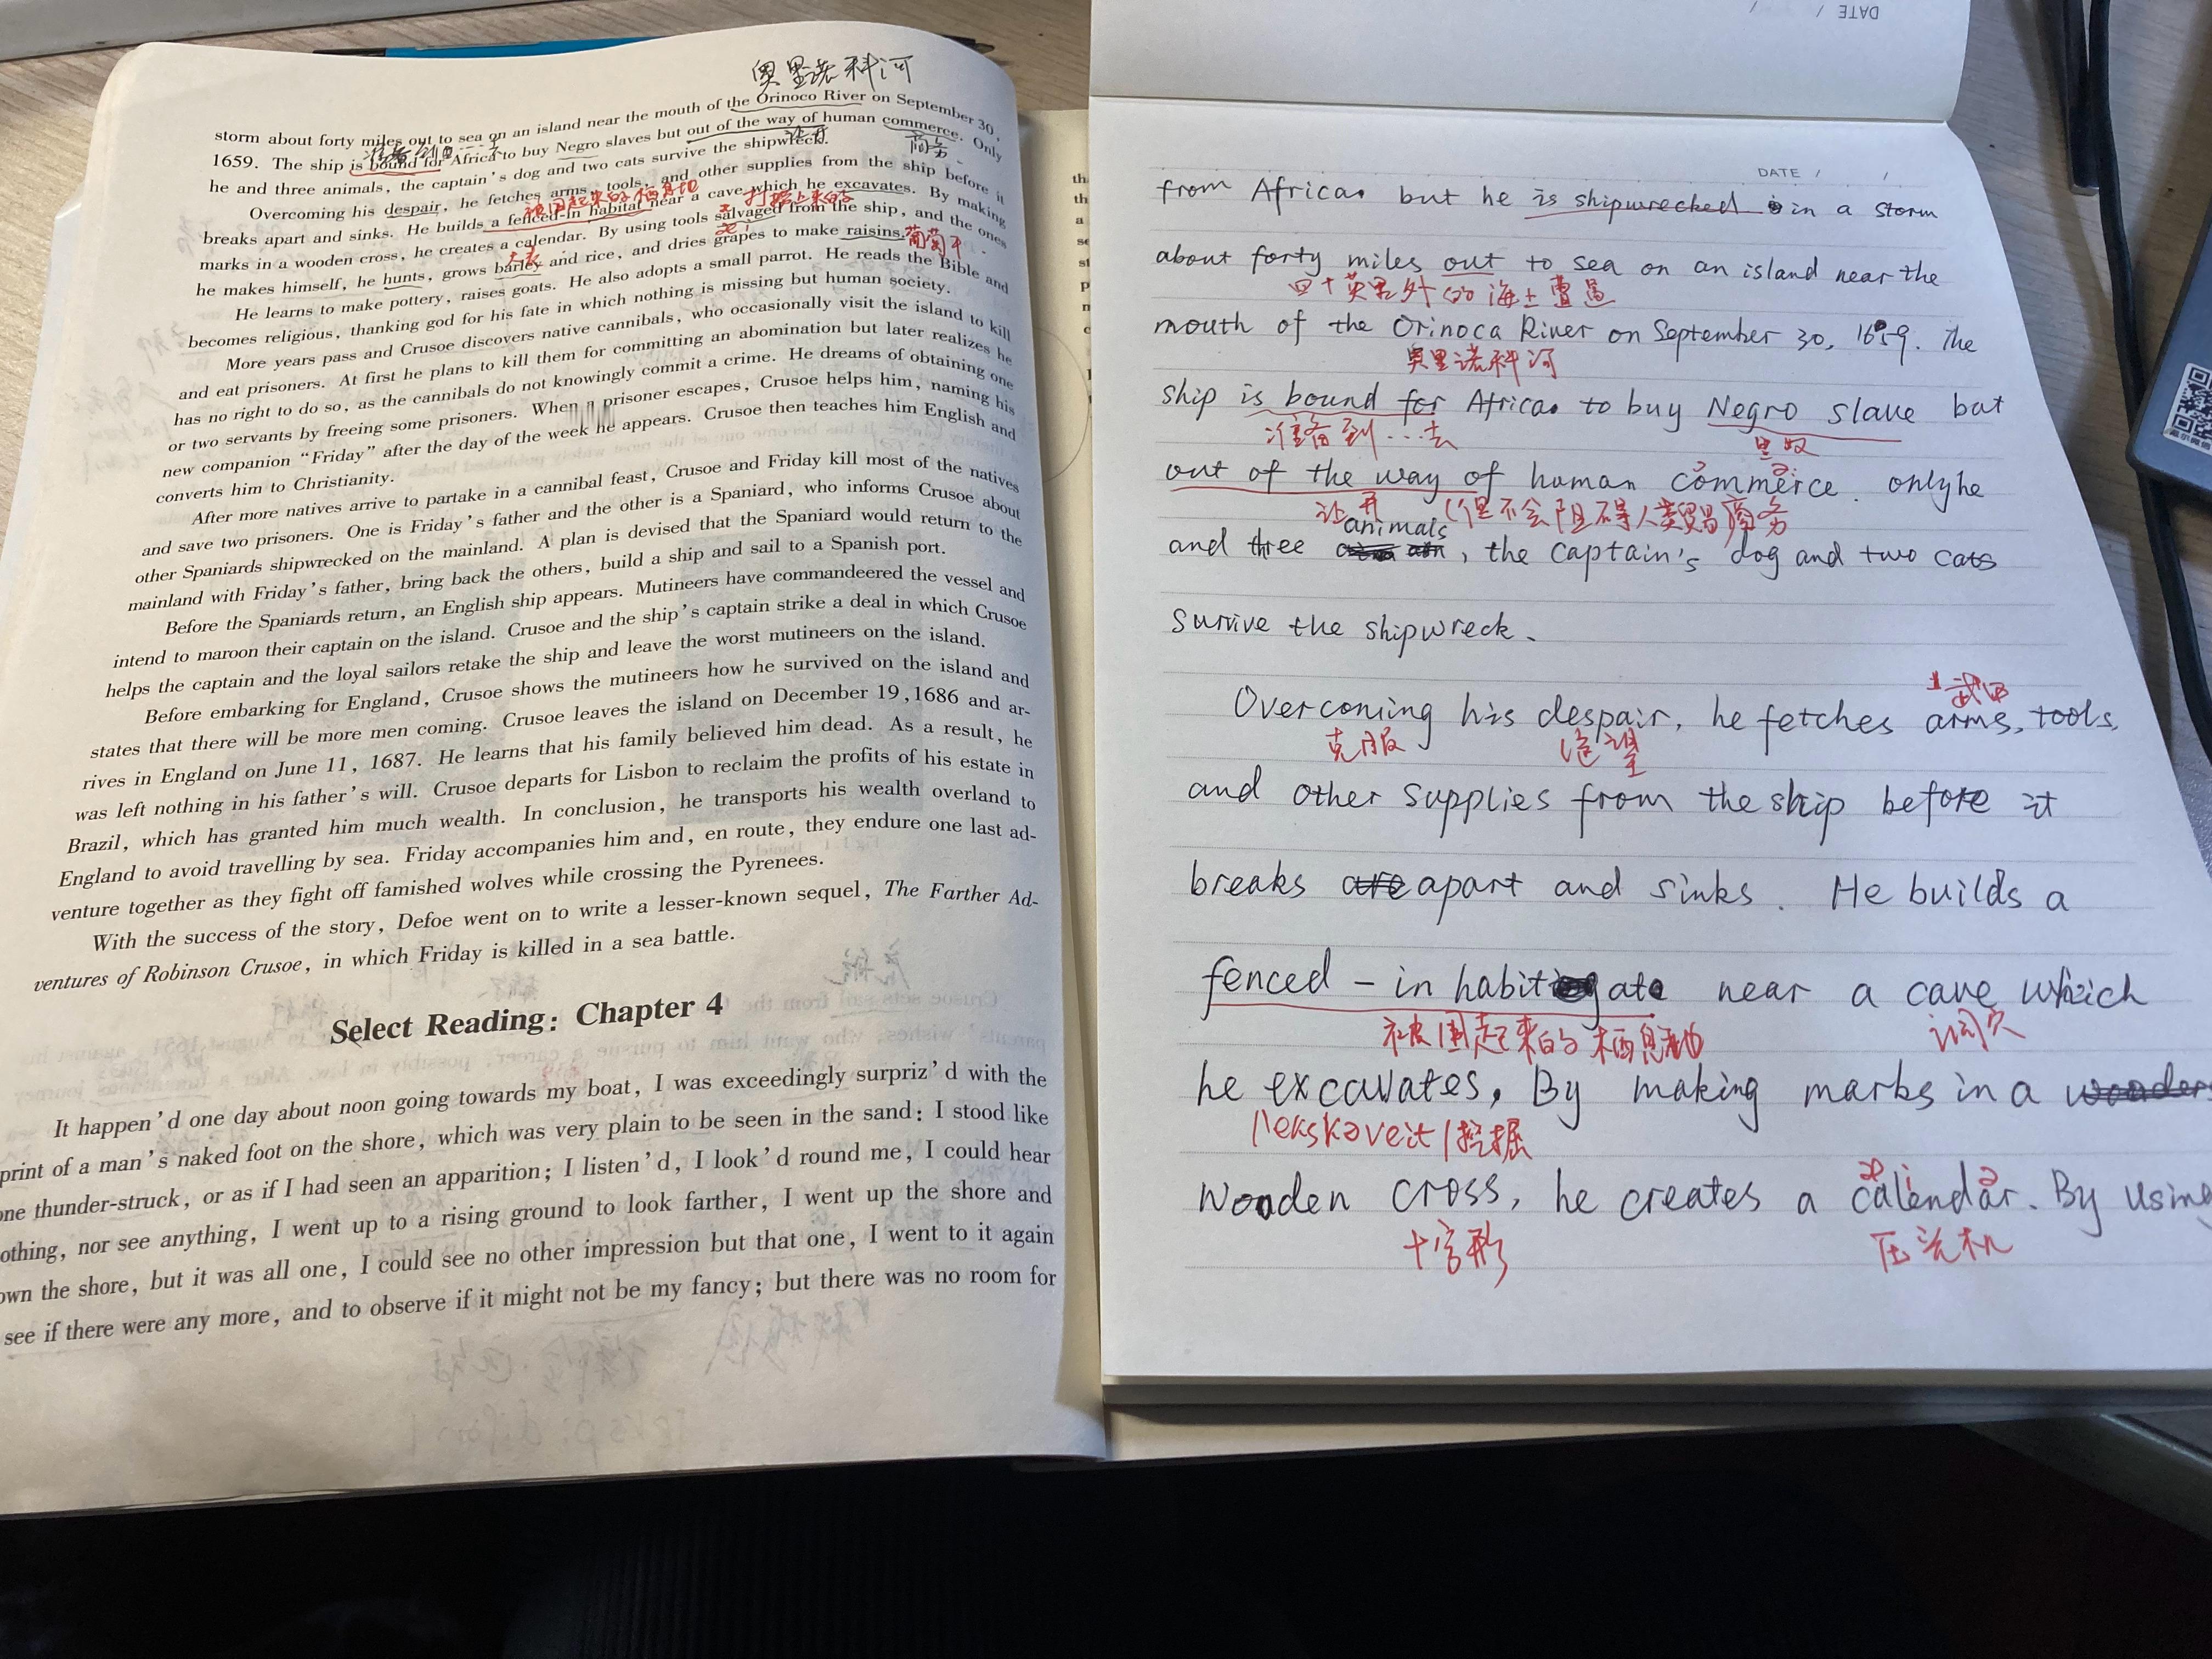 奥里诺科河
storm about forty miles out to sea on an island near the mouth of the Orinoco River on September 30,
1659. The ship is bound for Africa to buy Negro slaves but out of the way of human commerce. Only
准备到…去
让开
商务
he and three animals, the captain's dog and two cats survive the shipwreck.
Overcoming his despair, he fetches arms, tools, and other supplies from the ship before it
被围起来的栖息地
打捞上来的
breaks apart and sinks. He builds a fenced-in habitat near a cave which he excavates. By making
marks in a wooden cross, he creates a calendar. By using tools salvaged from the ship, and the ones
大麦
葡萄干
he makes himself, he hunts, grows barley and rice, and dries grapes to make raisins.
He learns to make pottery, raises goats. He also adopts a small parrot. He reads the Bible and
becomes religious, thanking god for his fate in which nothing is missing but human society.
More years pass and Crusoe discovers native cannibals, who occasionally visit the island to kill
and eat prisoners. At first he plans to kill them for committing an abomination but later realizes he
has no right to do so, as the cannibals do not knowingly commit a crime. He dreams of obtaining one
or two servants by freeing some prisoners. When a prisoner escapes, Crusoe helps him, naming his
new companion “Friday” after the day of the week he appears. Crusoe then teaches him English and
converts him to Christianity.
After more natives arrive to partake in a cannibal feast, Crusoe and Friday kill most of the natives
and save two prisoners. One is Friday's father and the other is a Spaniard, who informs Crusoe about
other Spaniards shipwrecked on the mainland. A plan is devised that the Spaniard would return to the
mainland with Friday's father, bring back the others, build a ship and sail to a Spanish port.
Before the Spaniards return, an English ship appears. Mutineers have commandeered the vessel and
intend to maroon their captain on the island. Crusoe and the ship's captain strike a deal in which Crusoe
helps the captain and the loyal sailors retake the ship and leave the worst mutineers on the island.
Before embarking for England, Crusoe shows the mutineers how he survived on the island and
states that there will be more men coming. Crusoe leaves the island on December 19,1686 and ar-
rives in England on June 11, 1687. He learns that his family believed him dead. As a result, he
was left nothing in his father's will. Crusoe departs for Lisbon to reclaim the profits of his estate in
Brazil, which has granted him much wealth. In conclusion, he transports his wealth overland to
England to avoid travelling by sea. Friday accompanies him and, en route, they endure one last ad-
venture together as they fight off famished wolves while crossing the Pyrenees.
With the success of the story, Defoe went on to write a lesser-known sequel, The Farther Ad-
ventures of Robinson Crusoe, in which Friday is killed in a sea battle.
Select Reading: Chapter 4
It happen'd one day about noon going towards my boat, I was exceedingly surpriz'd with the
print of a man's naked foot on the shore, which was very plain to be seen in the sand: I stood like
one thunder-struck, or as if I had seen an apparition; I listen'd, I look'd round me, I could hear
othing, nor see anything, I went up to a rising ground to look farther, I went up the shore and
own the shore, but it was all one, I could see no other impression but that one, I went to it again
see if there were any more, and to observe if it might not be my fancy; but there was no room for
DATE / /
DATE / /
from Africa. but he is shipwrecked in a storm
about forty miles out to sea on an island near the
四十英里外的海上遭遇
mouth of the Orinoca River on September 30, 1659. The
奥里诺科河
ship is bound for Africa. to buy Negro slave but
准备到…去
黑奴
out of the way of human commerce. only he
让开
(但不会阻碍人类贸易商务
and three animals, the captain's dog and two cats
survive the shipwreck.
Overcoming his despair, he fetches arms, tools,
克服
绝望
武器
and other supplies from the ship before it
breaks apart and sinks. He builds a
fenced-in habitate near a cave which
被围起来的栖息地
洞穴
he excavates. By making marks in a
/'ekskəveit/挖掘
wooden cross, he creates a calendar. By using
十字形
压光机